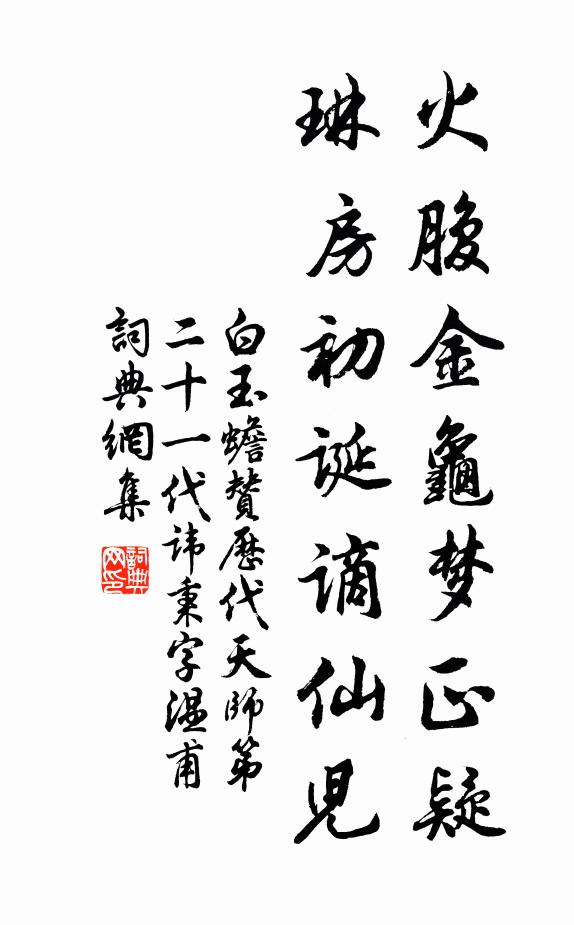 火腹金龜梦正疑
琳房初诞谪仙児
白玉蟾贊歷代天師第
二十一代讳秉字温甫
詞典網集
詞典网印